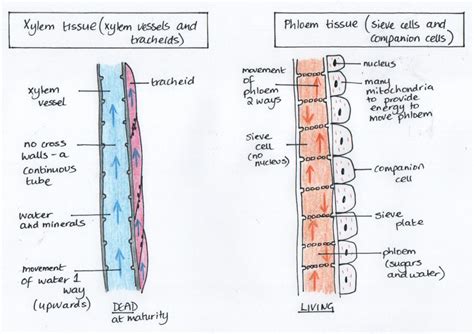 Xylem tissue (xylem vessels and
tracheids)
xylem
vessel
tracheid
no cross
walls - a
continuous
tube
water
and minerals
movement
of water 1
way
(upwards)
DEAD
at maturity
Phloem tissue (sieve cells and
companion cells)
movement
of phloem
2 ways
sieve
cell
(no
nucleus)
nucleus
many
mitochondria
to provide
energy to
move phloem
companion
cell
sieve
plate
phloem
(sugars
and water)
LIVING